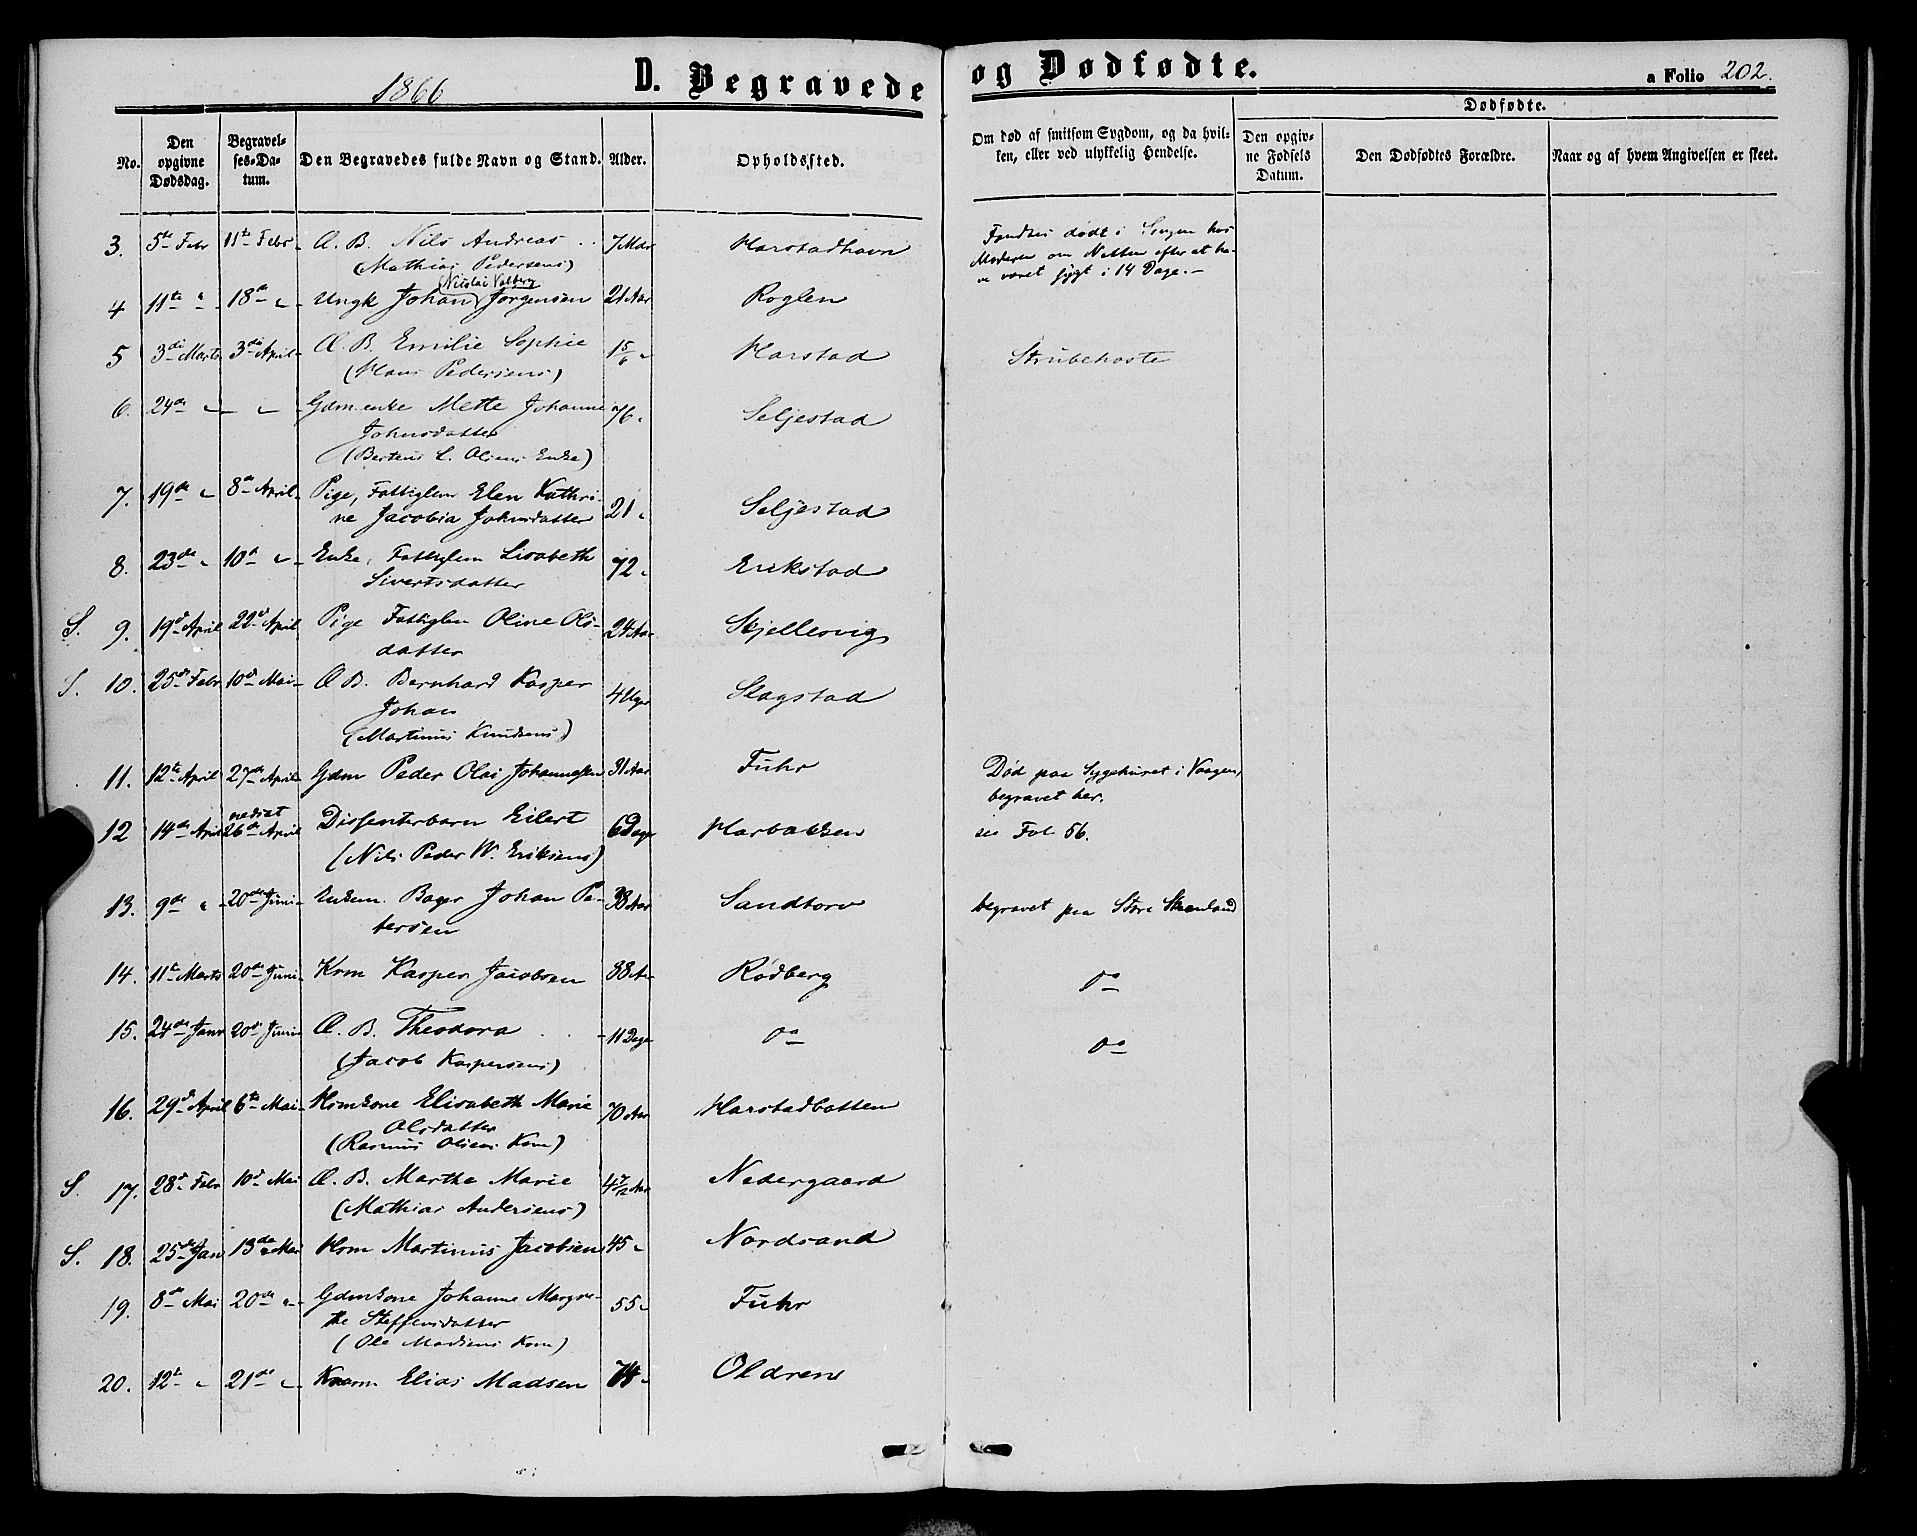 1866
D. Begravede og Dødfødte.
a Folio 202.
No.
Den opgivne Dødsdag.
Begravelses-Datum.
Den Begravedes fulde Navn og Stand.
Alder.
Opholdssted.
Om død af smitsom Sygdom, og da hvilken, eller ved ulykkelig Hendelse.
Dødfødte.
Den opgivne Fødsels Datum.
Den Dødfødtes Forældre.
Naar og af hvem Angivelsen er skeet.
3. 5te Febr 11te Febr Æ. B. Nils Andreas 7 Mdr Harstadhavn Fandtes dødt i Sengen hos
(Mathias Pedersens) Moderen om Natten efter at ha-
ve været sygt i 14 Dage.-
Nicolai Valberg
4 11te " 18de " Ungk Johan Jørgensen 21 Aar Roglen
5 3die Marts 3die April Æ. B. Emilie Sophie 1 5/6 " Harstad Strubehoste
(Hans Pedersens)
6. 24de " " Gdmenke Mette Johanne 76 " Seljestad
Johnsdatter
(Berteus L. Olsens Enke)
7. 19de " 8de April Pige, Fattiglem Elen Kathri-
ne Jacobia Johnsdatter 21 " Seljestad
8. 23de " 10d " Enke, Fattiglem Lisabeth 72 " Erikstad
Sivertsdatter
S. 9. 19d April 22d April Pige Fattiglem Oline Ols- 24 Aar Skjellesvig
datter
S. 10. 25d Febr 10d Mai Æ B. Bernhard Kasper 4 Uger Slagstad
Johan
(Martinus Knudsens)
11. 12te April 27de April Gdm Peder Olai Johannessen 31 Aar Fuhr Død paa Sygehuset i Vaagen,
begravet her.
nedsat
12 14de April 26de April Dissenterbarn Eilert 6 Dage Harbakken se Fol 56.
(Nils Peder W. Eriksens)
13. 9de " 20de Juni Enkem. Bager Johan Pe- 38 Aar Sandtorv begravet paa Store Skoenland
tersen
14. 11te Marts 20de Juni Krm Kasper Jacobsen 38 Aar Rødberg do
15. 24de Janr 20d Juni Æ. B. Theodora 11 Dage do do
(Jacob Kaspersens)
16. 29d April 6te Mai Hsmkone Elisabeth Marie 70 Aar Harstadbotten
Olsdatter
(Rasmus Olsens Kone)
S. 17. 28d Febr 10d Mai Æ. B. Marthe Marie 4 7/12 Aar Nedergaard
(Mathias Andersens)
S. 18. 25de Jan 13de Mai Hsm Martinus Jacobsen 45 " Nordsand
19. 8de Mai 20de " Gdmkone Johanne Margre- 55 " Fuhr
the Steffensdatter
(Ole Madsens Kone)
20. 12te " 21de " Kaarm Elias Madsen 74 " Oldren